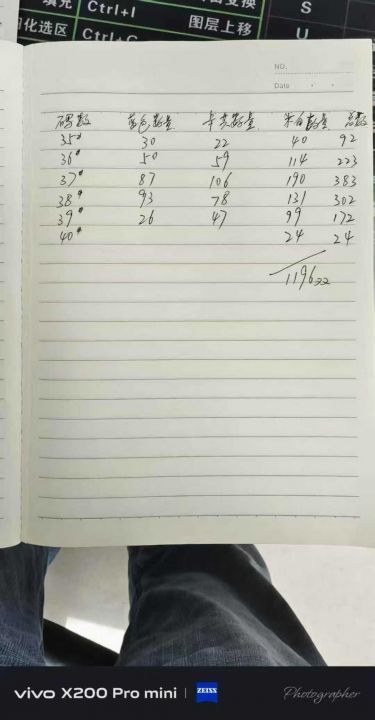 填充 Ctrl+I
图层上移
S
选区 Ctrl+
U
NO.
Date
码数 蓝色数量 卡其数量 米白数量 总数
35# 30 22 40 92
36# 50 59 114 223
37# 87 106 190 383
38# 93 78 131 302
39# 26 47 99 172
40# 24 24
1196双
vivo X200 Pro mini | ZEISS Photographer